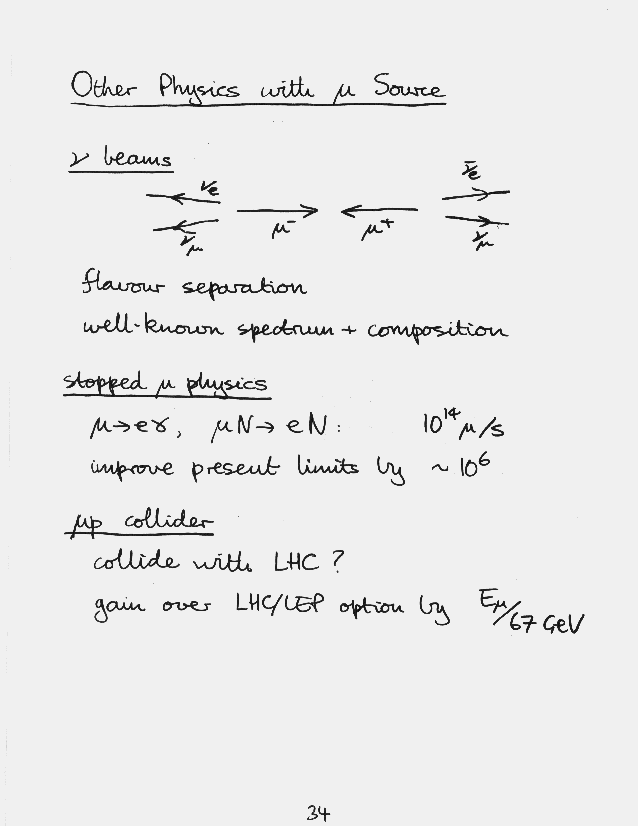 Other Physics with μ Source
ν beams
ν̄e
νe
μ⁻
μ⁺
ν̄μ
νμ
flavour separation
well-known spectrum + composition
stopped μ physics
μ→eγ, μN→eN: 10¹⁴ μ/s
improve present limits by ~ 10⁶
μp collider
collide with LHC ?
gain over LHC/LEP option by Eμ/67 GeV
34